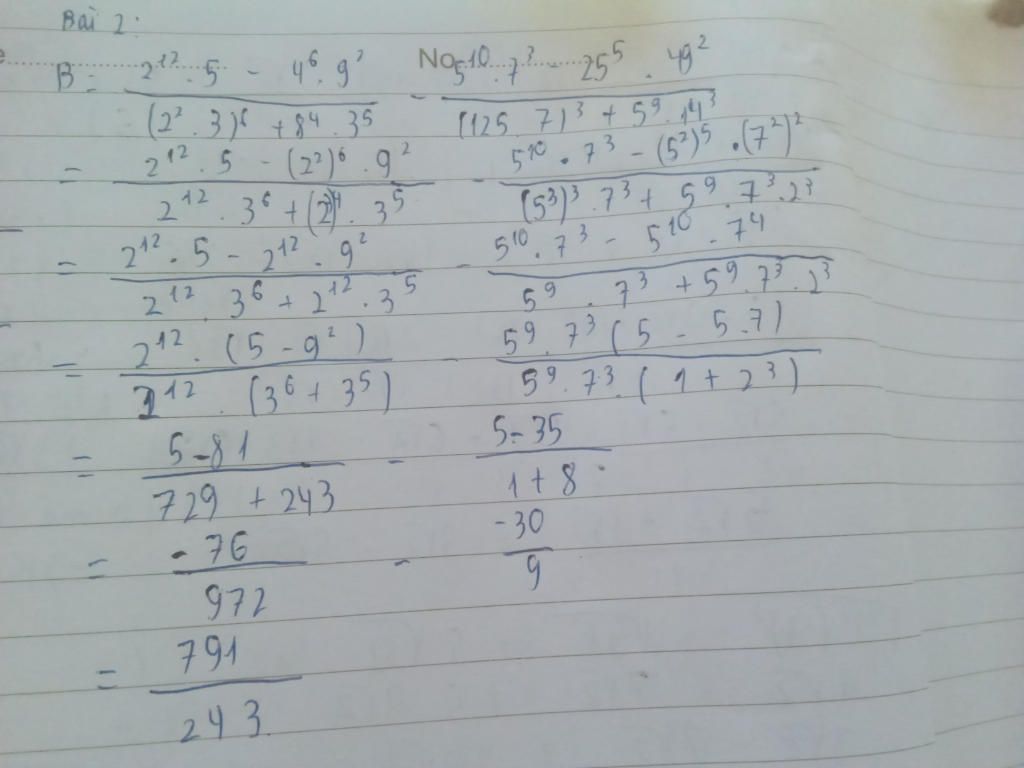 Bài 2:
B = (2¹² . 5 - 4⁶ . 9²) / ((2² . 3)⁶ + 8⁴ . 3⁵) - (5¹⁰ . 7³ - 25⁵ . 49²) / ((125 . 7)³ + 5⁹ . 14³) No
= (2¹² . 5 - (2²)⁶ . 9²) / (2¹² . 3⁶ + (2³)⁴ . 3⁵) - (5¹⁰ . 7³ - (5²)⁵ . (7²)²) / ((5³)³ . 7³ + 5⁹ . 7³ . 2³)
= (2¹² . 5 - 2¹² . 9²) / (2¹² . 3⁶ + 2¹² . 3⁵) - (5¹⁰ . 7³ - 5¹⁰ . 7⁴) / (5⁹ . 7³ + 5⁹ . 7³ . 2³)
= (2¹² . (5 - 9²)) / (2¹² . (3⁶ + 3⁵)) - (5⁹ . 7³ (5 - 5.7)) / (5⁹ . 7³ . (1 + 2³))
= (5 - 81) / (729 + 243) - (5 - 35) / (1 + 8)
= -76 / 972 - -30 / 9
= 791 / 243